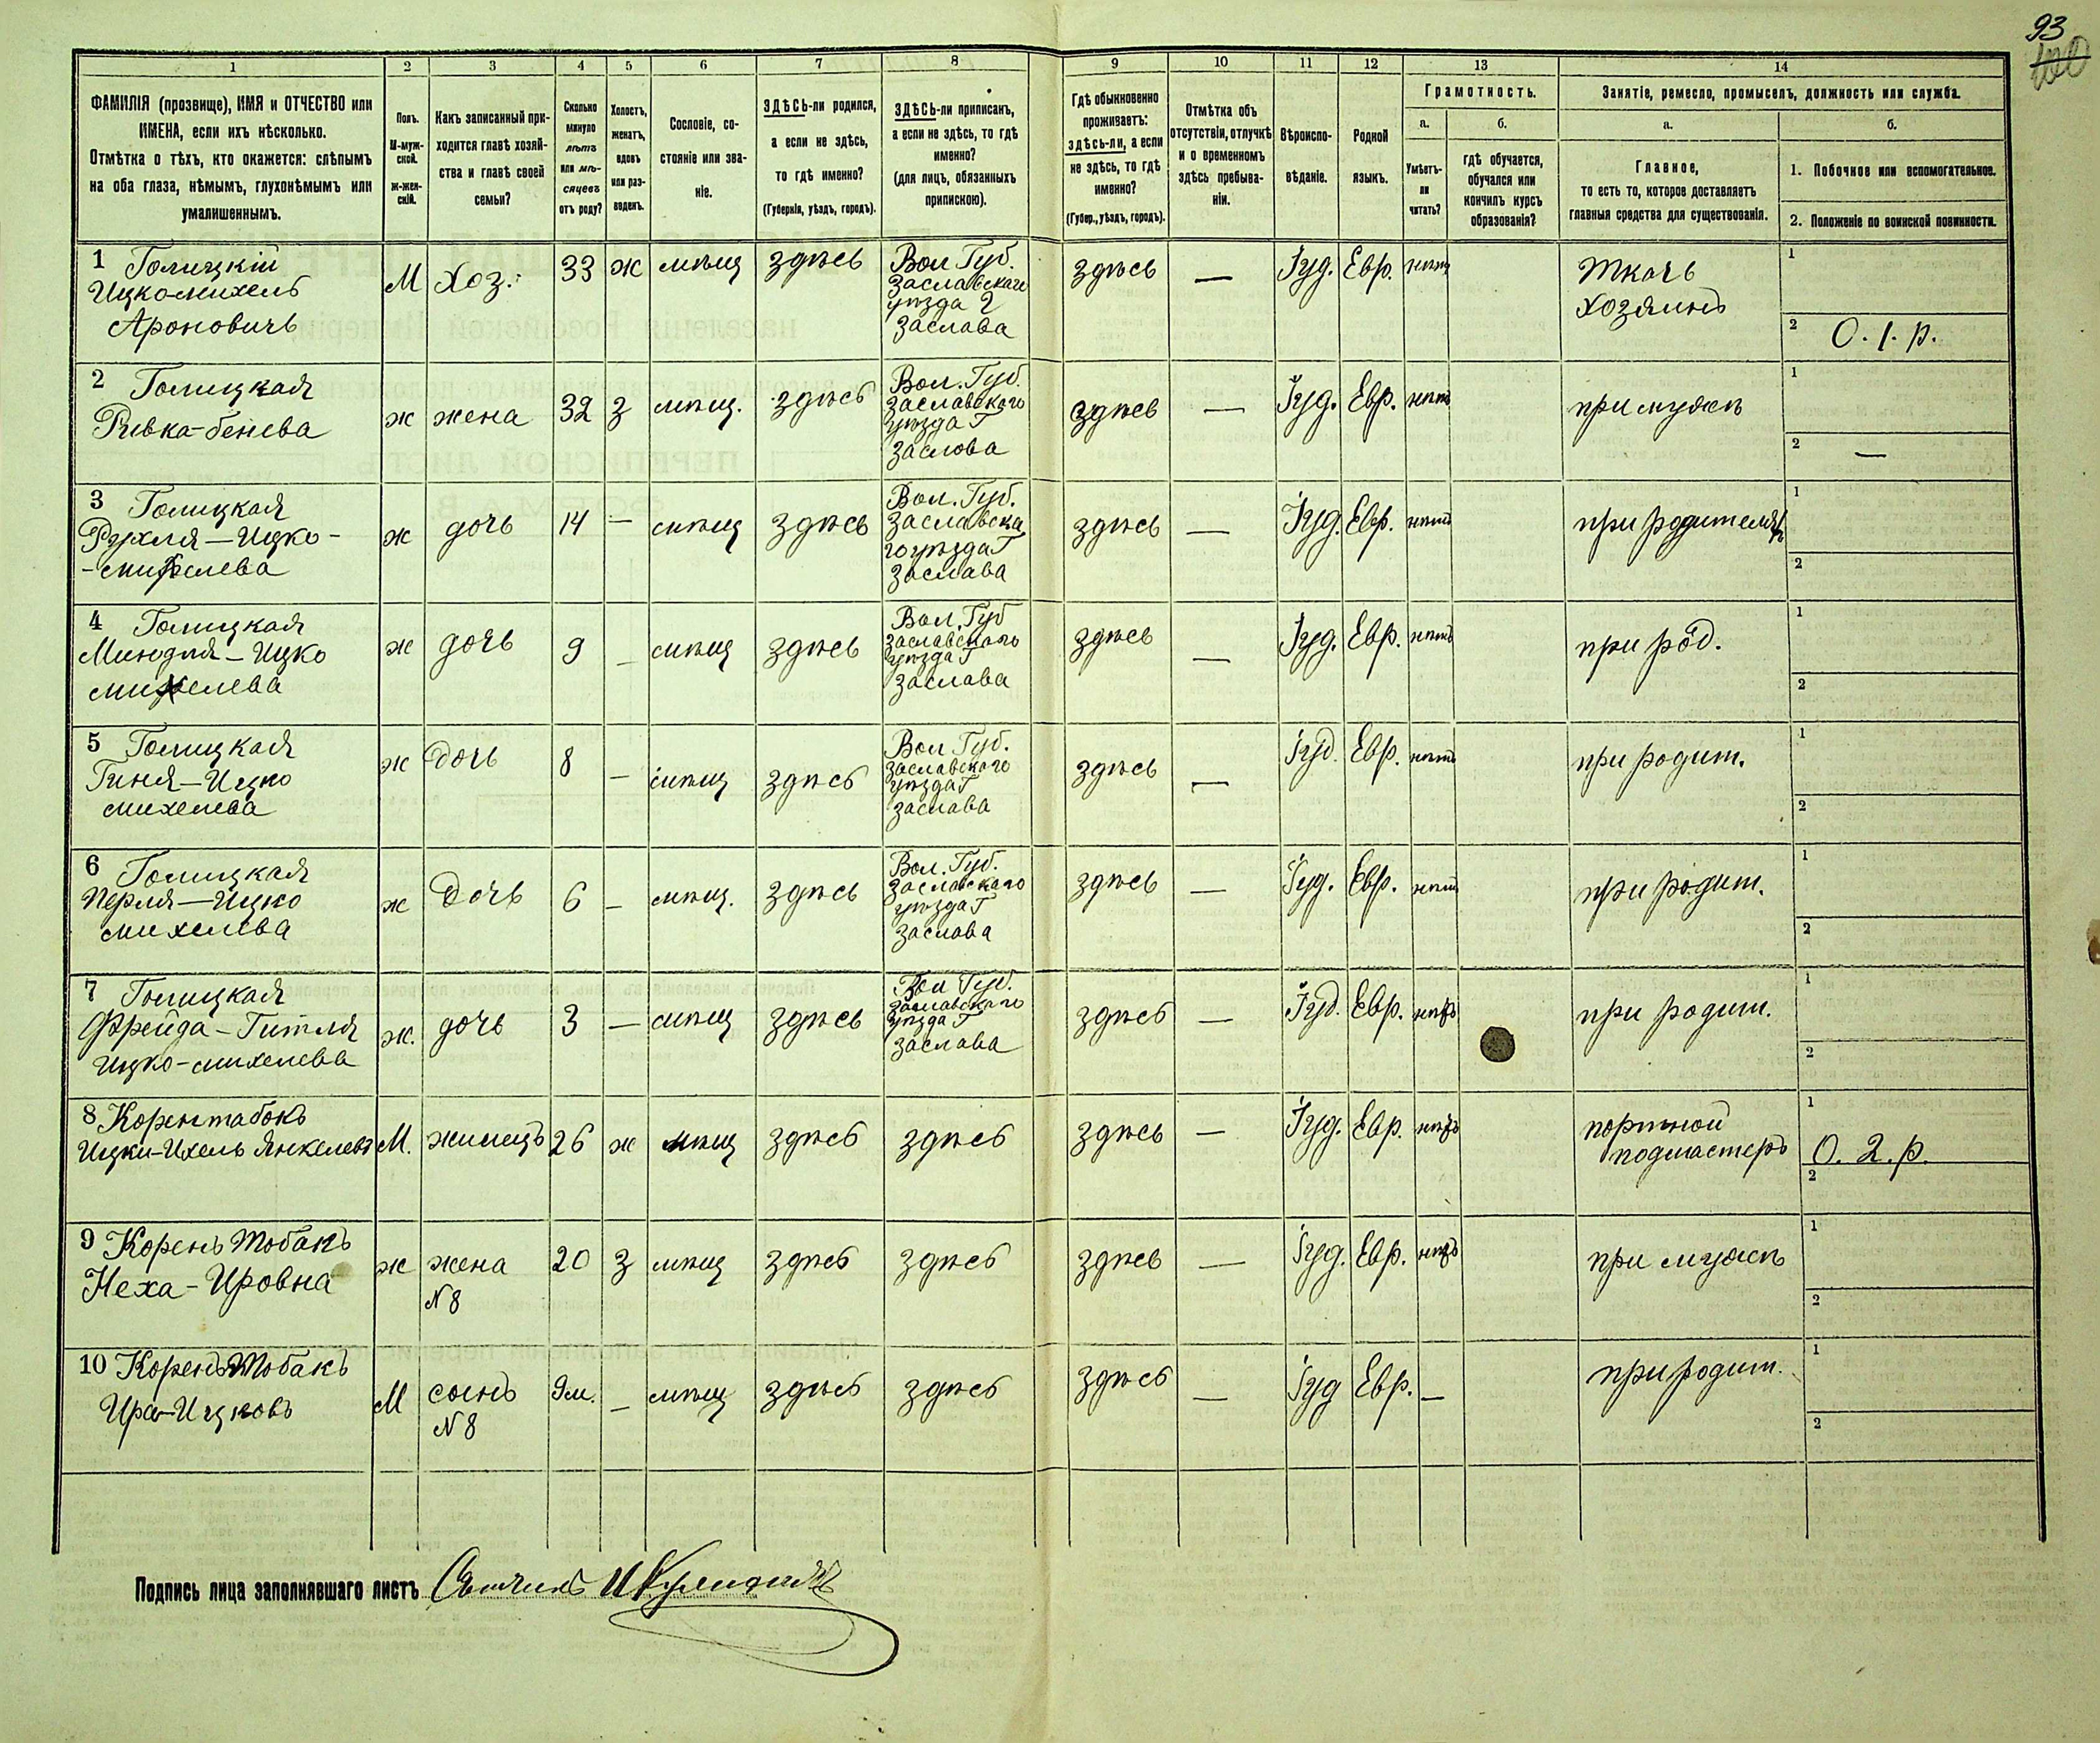 93
1 2 3 4 5 6 7 8 9 10 11 12 13 14
ФАМИЛІЯ (прозвище), ИМЯ и ОТЧЕСТВО или
ИМЕНА, если ихъ нѣсколько.
Отмѣтка о тѣхъ, кто окажется: слѣпымъ
на оба глаза, нѣмымъ, глухонѣмымъ или
умалишеннымъ.
Полъ.
М-муж-
ской.
Ж-жен-
скій.
Какъ записанный при-
ходится главѣ хозяй-
ства и главѣ своей
семьи?
Сколько
минуло
лѣтъ
или мѣ-
сяцевъ
отъ роду?
Холостъ,
женатъ,
вдовъ
или раз-
веденъ.
Сословіе, со-
стояніе или зва-
ніе.
ЗДѢСЬ-ли родился,
а если не здѣсь,
то гдѣ именно?
(Губернія, уѣздъ, городъ).
ЗДѢСЬ-ли приписанъ,
а если не здѣсь, то гдѣ
именно?
(для лицъ, обязанныхъ
припискою).
Гдѣ обыкновенно
проживаетъ:
здѣсь-ли, а если
не здѣсь, то гдѣ
именно?
(Губер., уѣздъ, городъ).
Отмѣтка объ
отсутствіи, отлучкѣ
и о временномъ
здѣсь пребыва-
ніи.
Вѣроиспо-
вѣданіе.
Родной
языкъ.
Грамотность.
а.
Умѣетъ-
ли
читать?
б.
гдѣ обучается,
обучался или
кончилъ курсъ
образованія?
Занятіе, ремесло, промыселъ, должность или служба.
а.
Главное,
то есть то, которое доставляетъ
главныя средства для существованія.
б.
1. Побочное или вспомогательное.
2. Положеніе по воинской повинности.
1 Голицкій
Ицкомихель
Ароновичъ
М
Хоз.
33
ж
мѣщ
здѣсь
Вол Губ.
Заславскаго
уѣзда г
Заслава
здѣсь
—
Іуд.
Евр.
нѣтъ
Ткачъ
хозяинъ
1
2 О. 1. р.
2 Голицкая
Ривка-бенева
ж
жена
32
З
мѣщ.
здѣсь
Вол. Губ.
Заславскаго
уѣзда Г
Заслова
здѣсь
—
Іуд.
Евр.
нѣтъ
при мужѣ
1
2 —
3 Голицкая
Рухля—Ицко-
-михелева
ж
дочь
14
—
мѣщ
здѣсь
Вол. Губ.
Заславска
го уѣзда Г
Заслава
здѣсь
—
Іуд.
Евр.
нѣтъ
при родителяхъ
1
2
4 Голицкая
Миндля—Ицко
михелева
ж
дочь
9
—
мѣщ
здѣсь
Вол. Губ
Заславскаго
уѣзда Г
Заслава
здѣсь
—
Іуд.
Евр.
нѣтъ
при род.
1
2
5 Голицкая
Гиня—Ицко
михелева
ж
дочь
8
—
мѣщ
здѣсь
Вол Губ.
Заславскаго
уѣзда Г
Заслава
здѣсь
—
Іуд.
Евр.
нѣтъ
при родит.
1
2
6 Голицкая
Перля—Ицко
михелева
ж
дочь
6
—
мѣщ.
здѣсь
Вол. Губ.
Заславскаго
уѣзда Г
Заслава
здѣсь
—
Іуд.
Евр.
нѣтъ
при родит.
1
2
7 Голицкая
Фрейда-Гитля
Ицко-михелева
ж.
дочь
3
—
мѣщ
здѣсь
Вол Губ.
Заславскаго
уѣзда Г
Заслава
здѣсь
—
Іуд.
Евр.
нѣтъ
при родит.
1
2
8 Корентабокъ
Ицки-Ихель Янкелевъ
М.
жилецъ
26
ж
мѣщ
здѣсь
здѣсь
здѣсь
—
Іуд.
Евр.
нѣтъ
портной
подмастеръ
1
О. 2. р.
2
9 Корень Тобакъ
Неха-Ировна
ж
жена
N 8
20
З
мѣщ
здѣсь
здѣсь
здѣсь
—
Іуд.
Евр.
нѣтъ
при мужѣ
1
2
10 Корень Тобакъ
Ира-Ицковъ
М
сынъ
N 8
9м.
—
мѣщ
здѣсь
здѣсь
здѣсь
—
Іуд
Евр.
—
при родит.
1
2
Подпись лица заполнявшаго листъ